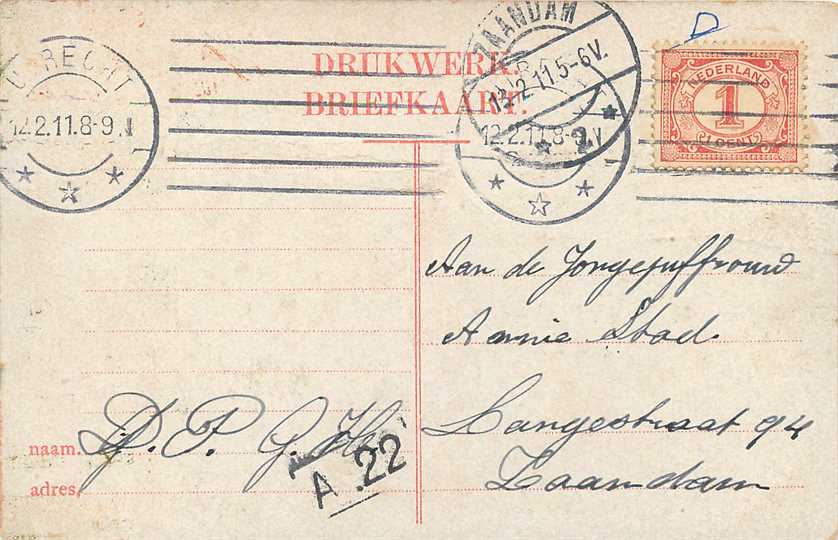 UTRECHT
12.2.11.8-9.V
DRUKWERK.
BRIEFKAART.
ZAANDAM
12.2.11.5-6V.
2
12.2.11.8-9.V
D
NEDERLAND
1
(1 CENT)
Aan de Jongejuffrouw
Annie Stad
Langestraat 94
Zaandam
naam. D. P. G. H
adres
A 22